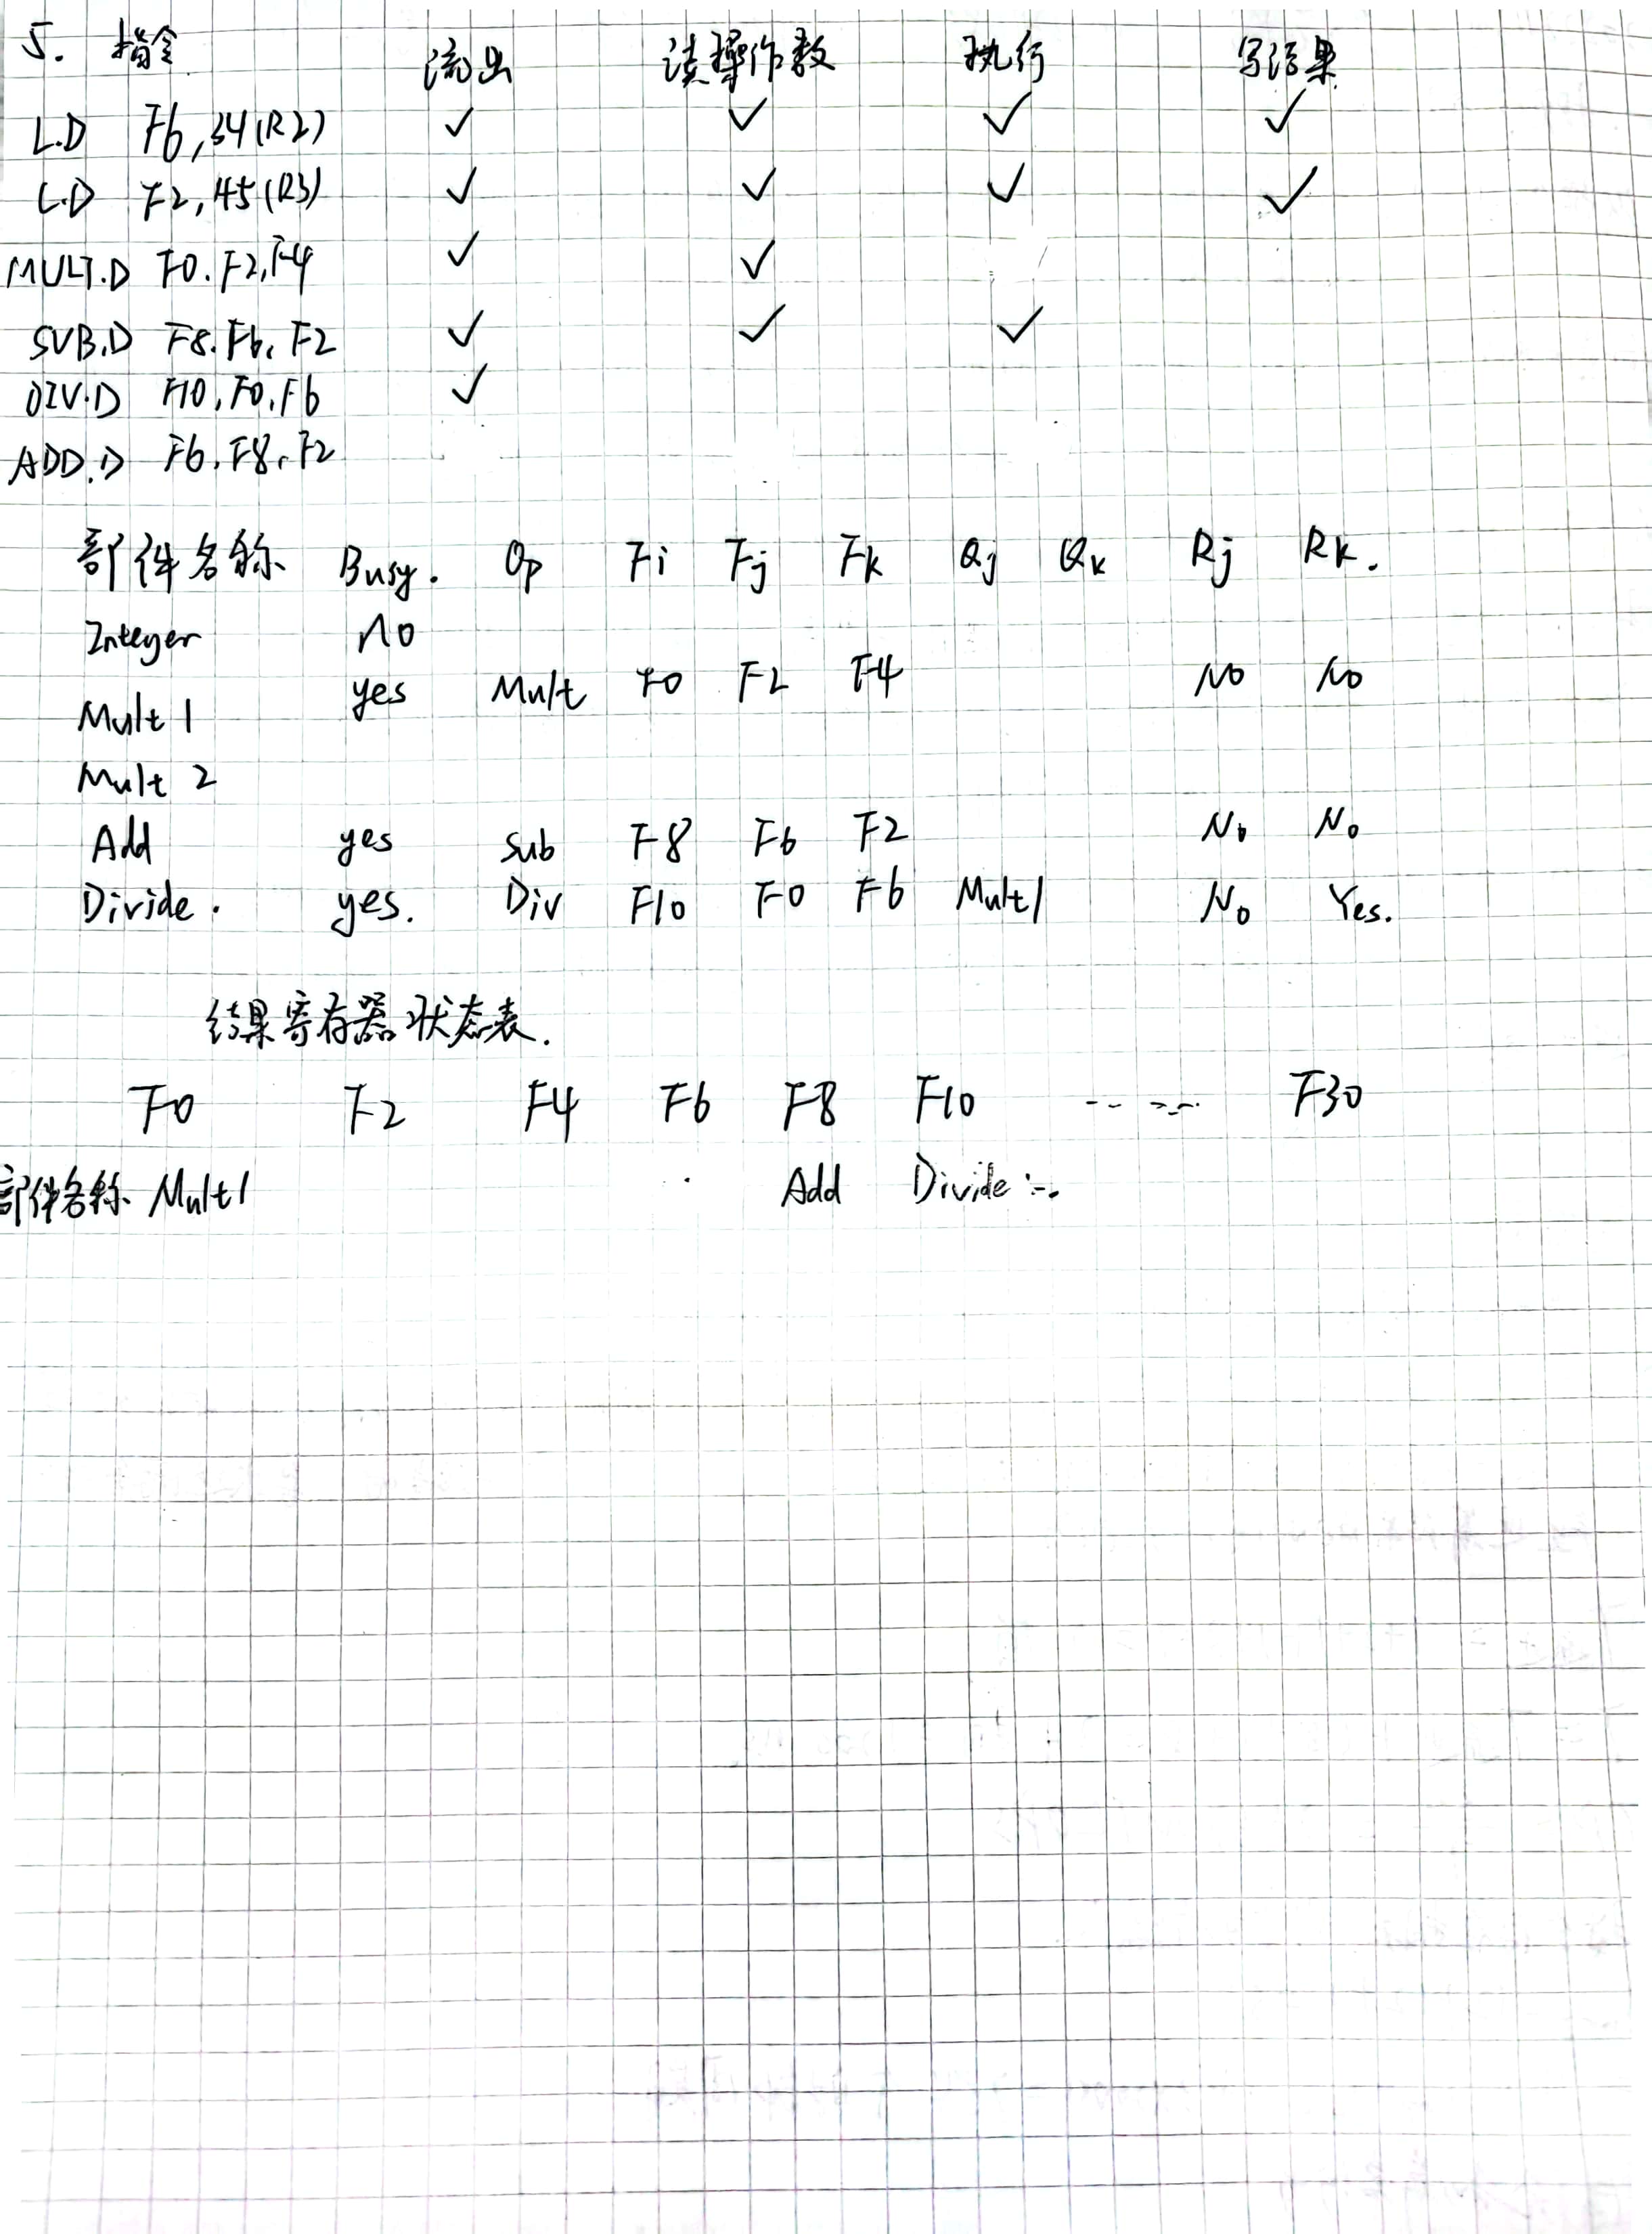 5. 指令 流出 读操作数 执行 写结果
L.D F6,34(R2) ✓ ✓ ✓ ✓
L.D F2,45(R3) ✓ ✓ ✓ ✓
MULT.D F0.F2,F4 ✓ ✓
SUB.D F8.F6,F2 ✓ ✓ ✓
DIV.D F10,F0,F6 ✓
ADD.D F6,F8,F2
部件名称 Busy. Op Fi Fj Fk Qj Qk Rj Rk.
Integer No
Mult1 yes Mult F0 F2 F4 No No
Mult 2
Add yes Sub F8 F6 F2 No No
Divide. yes. Div F10 F0 F6 Mult1 No Yes.
结果寄存器状态表.
F0 F2 F4 F6 F8 F10 ----- F30
部件名称 Mult1 Add Divide